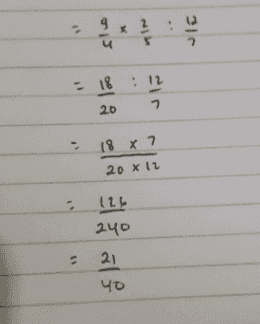 = 9/4 x 2/5 : 12/7
= 18/20 : 12/7
= 18 x 7 / 20 x 12
= 126/240
= 21/40